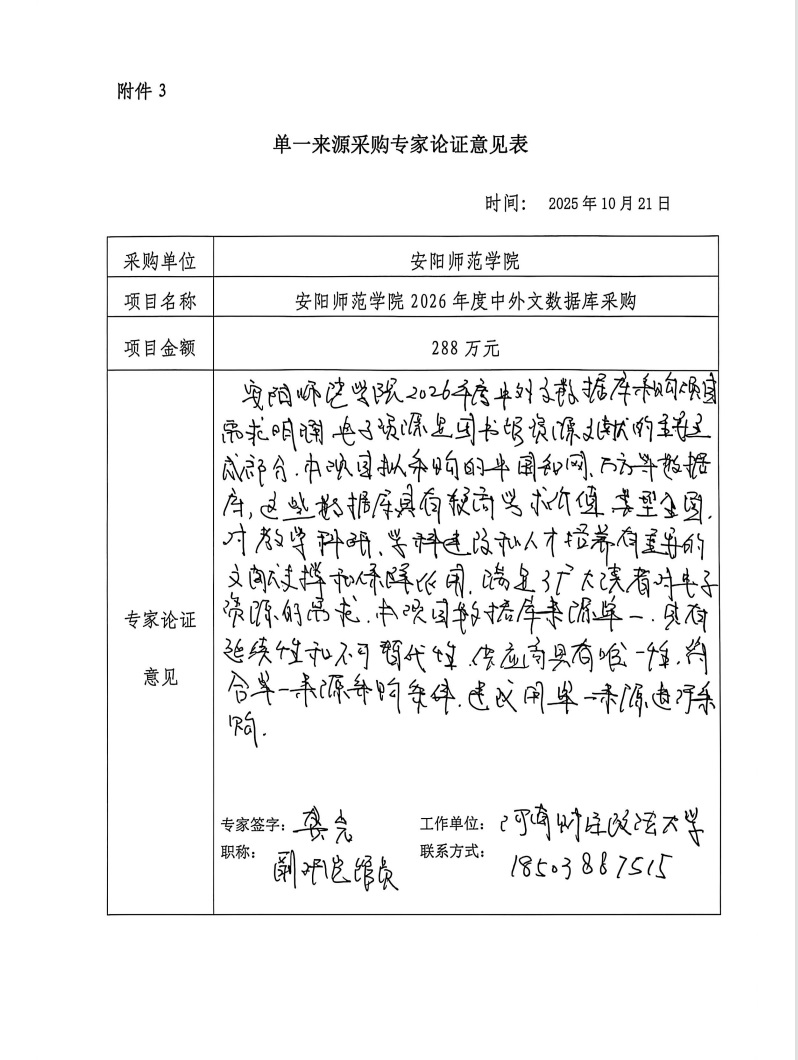 附件 3
单一来源采购专家论证意见表
时间： 2025 年 10 月 21 日
采购单位 安阳师范学院
项目名称 安阳师范学院 2026 年度中外文数据库采购
项目金额 288 万元
专家论证意见
安阳师范学院2026年度中外文数据库采购项目
需求明确 电子资源是图书馆资源文献的重要组
成部分.本项目拟采购的中国知网、万方等数据
库,这些数据库具有较高学术价值 类型全面,
对教学科研、学科建设和人才培养有重要的
文献支撑和保障作用,满足了广大读者对电子
资源的需求.本项目数据库来源单一.具有
延续性和不可替代性 供应商具有唯一性,符
合单一来源采购条件.建议用单一来源进行采
购.
专家签字：龚亮 工作单位：河南财经政法大学
职称：副研究馆员 联系方式：18503887515